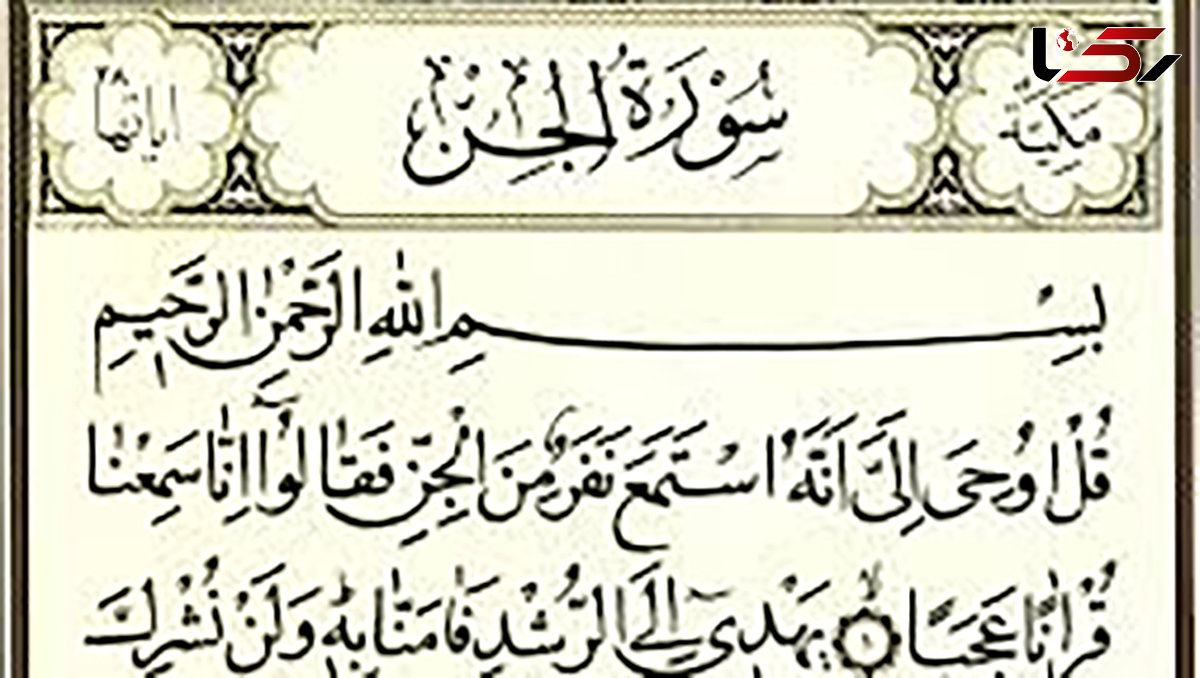 رکنا
مَكِّيَّة سُوْرَةُ الْجِنِّ اٰيَاتُهَا ٢٨
بِسْمِ اللّٰهِ الرَّحْمٰنِ الرَّحِيْمِ
قُلْ اُوْحِىَ اِلَىَّ اَنَّهُ اسْتَمَعَ نَفَرٌ مِنَ الْجِنِّ فَقَالُوْٓا اِنَّا سَمِعْنَا
قُرْاٰنًا عَجَبًا ١ يَهْدِىٓ اِلَى الرُّشْدِ فَاٰمَنَّا بِهٖ وَلَنْ نُشْرِكَ